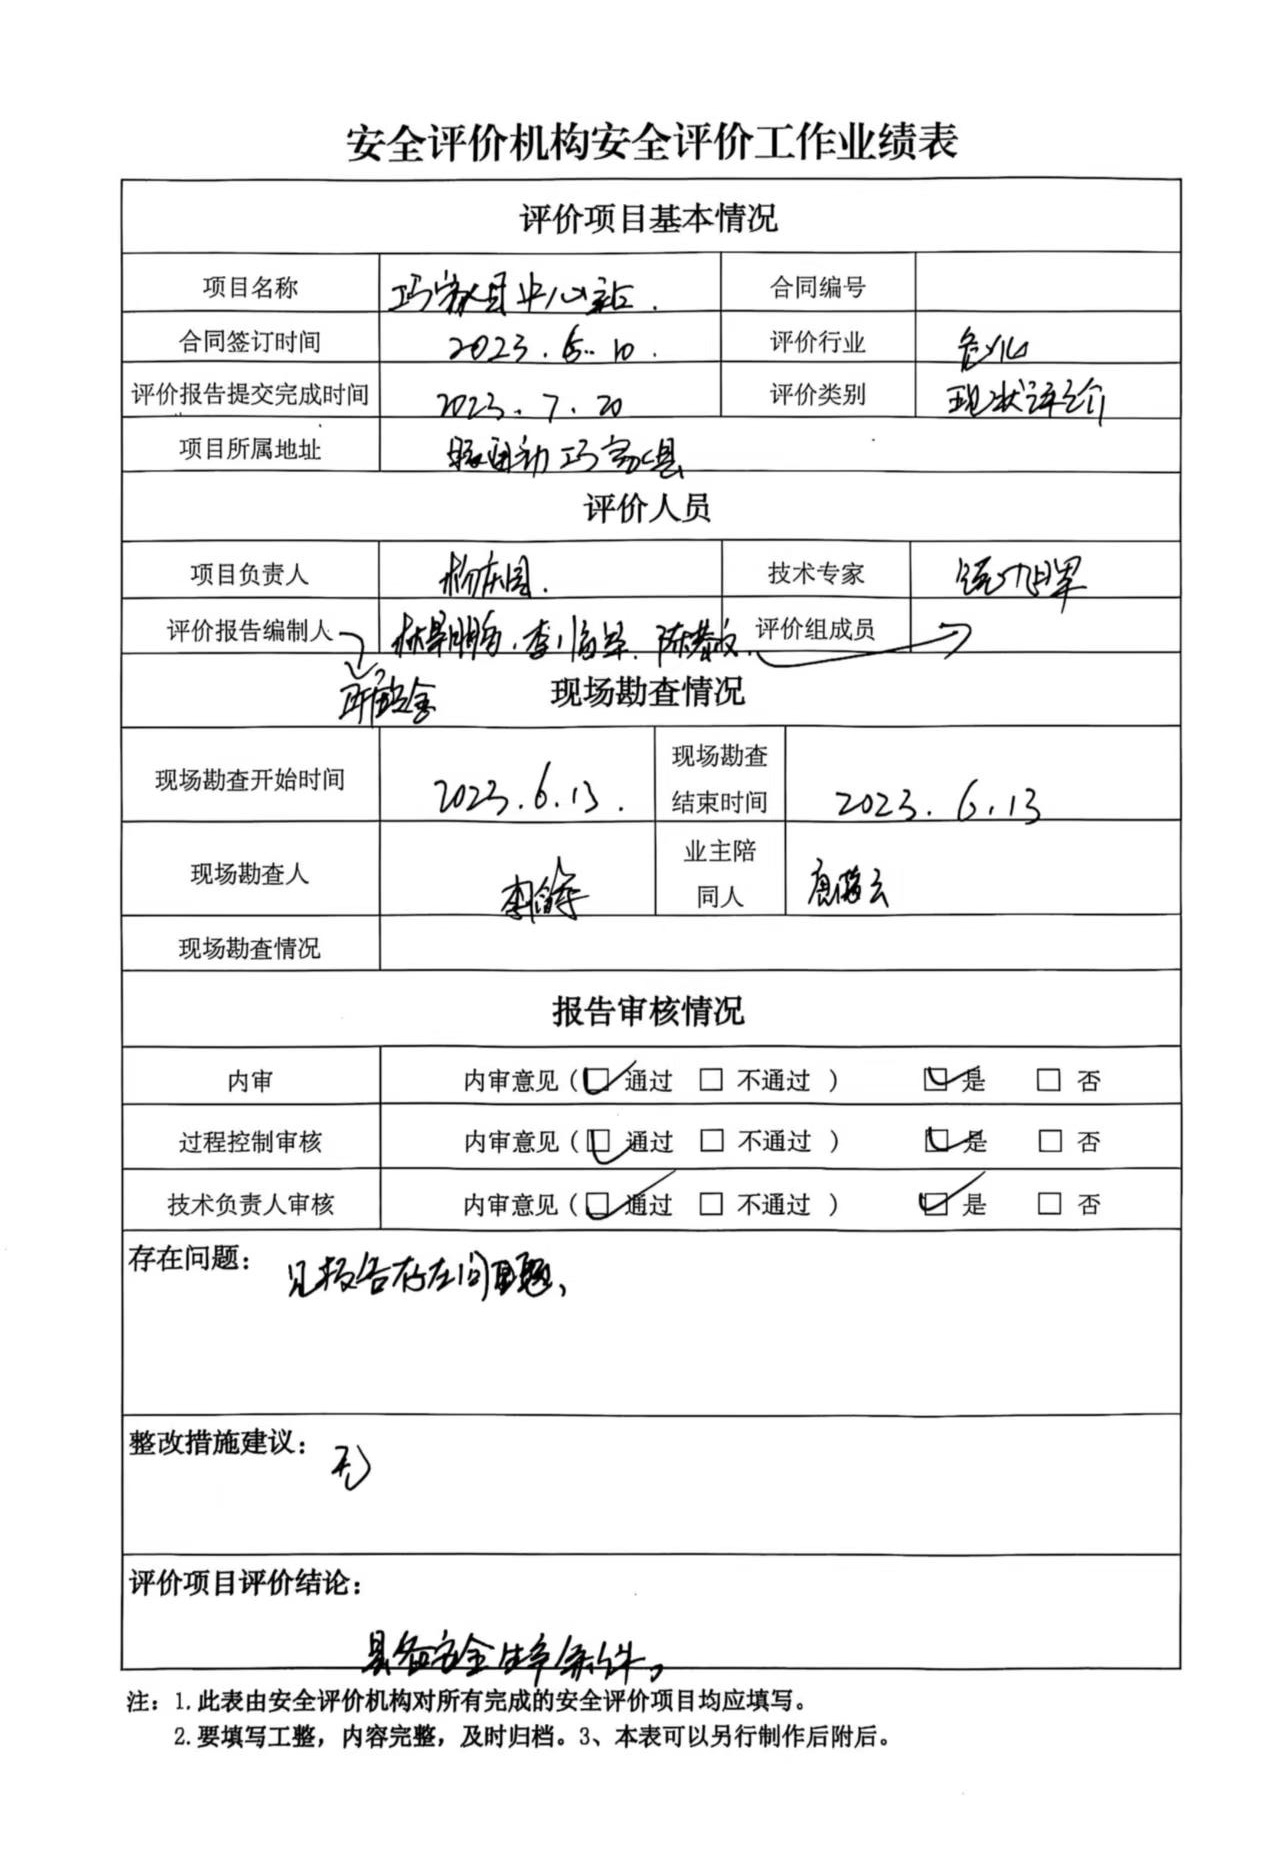 安全评价机构安全评价工作业绩表
评价项目基本情况
项目名称 巧家县中心站. 合同编号
合同签订时间 2023.6.10. 评价行业 危化
评价报告提交完成时间 2023.7.20 评价类别 现状评价
项目所属地址 昭通市巧家县
评价人员
项目负责人 技术专家
评价报告编制人 评价组成员
现场勘查情况
现场勘查开始时间 2023.6.13. 现场勘查结束时间 2023.6.13
现场勘查人 业主陪同人
现场勘查情况
报告审核情况
内审 内审意见（☑通过 □ 不通过 ） ☑是 □ 否
过程控制审核 内审意见（☑通过 □ 不通过 ） ☑是 □ 否
技术负责人审核 内审意见（☑通过 □ 不通过 ） ☑是 □ 否
存在问题： 见报告存在问题,
整改措施建议： 无
评价项目评价结论：
具备安全生产条件。
注：1.此表由安全评价机构对所有完成的安全评价项目均应填写。
2.要填写工整，内容完整，及时归档。3、本表可以另行制作后附后。